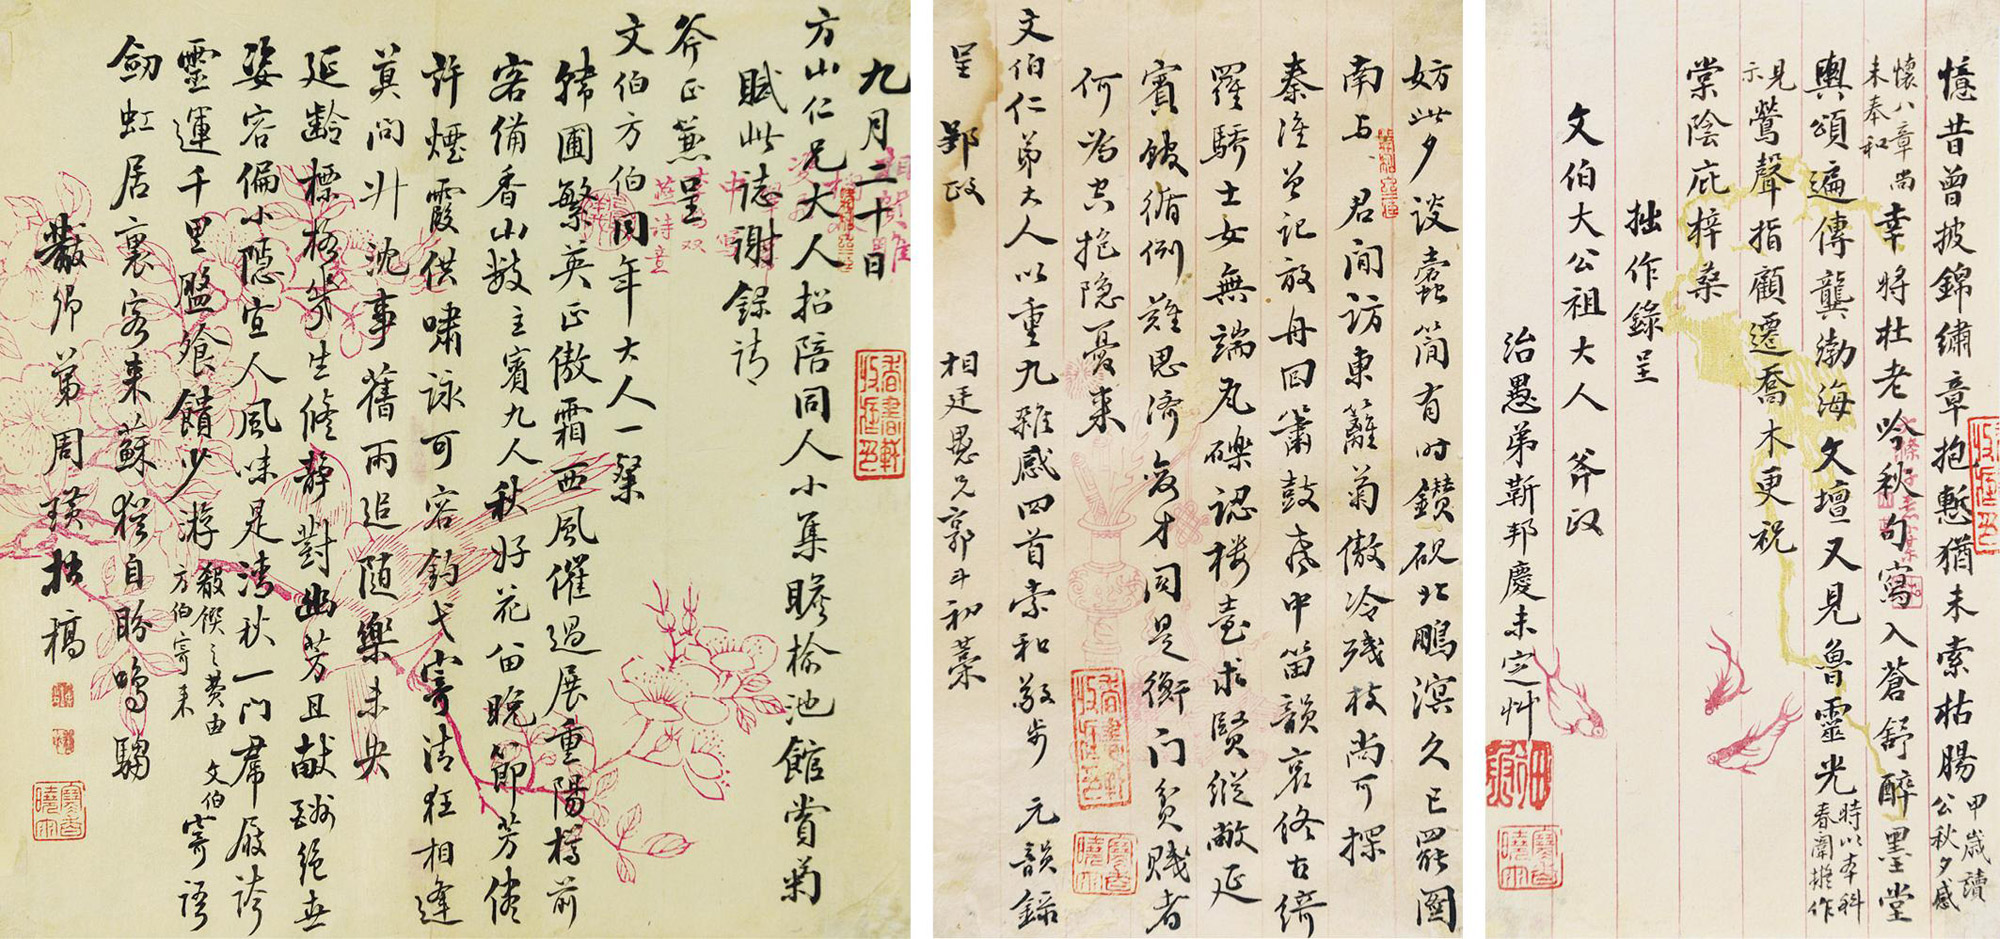 九月二十日
方山仁兄大人招陪同人小集瞻榆池館賞菊
賦此誌謝錄請
斧正兼呈
文伯方伯同年大人一粲
繞圃繁英正傲霜西風催過展重陽樽前
客備香山數主賓九人秋好花留晚節芳儘
許煙霞供嘯詠可容鈞弋寄清狂相逢
莫問升沈事舊雨追隨樂未央
延齡標格幾生修靜對幽芳且獻酬絕世
姿容偏小隱宜人風味是清秋一門席屐誇
靈運千里盤飧饋少游殽饌之費由文伯方伯寄來寄語
劍虹居裏客來蘇猶自盼鳴騶
黻卿弟周瑛拙稿
妨此夕談蠹簡有時鑽硯北鵬溟久已罷圖
南与君閒訪東籬菊傲冷殘枝尚可探
秦淮曾記放舟回簫鼓聲中笛韻哀終古綺
羅驕士女無端瓦礫認樓臺求賢縱敞延
賓館循例難思濟變才同是衡门貧賤者
何為空抱隱憂來
文伯仁弟大人以重九雜感四首索和敬步元韻錄
呈郢政
相廷愚兄郭斗初藁
憶昔曾披錦繡章抱慙猶未索枯腸甲歲讀公秋夕感
懷八章尚未奉和幸將杜老吟秋句寫入蒼舒醉墨堂
輿頌遍傳龔渤海文壇又見魯靈光時以本科春闈擬作
見示鶯聲指顧遷喬木更祝
棠陰庇梓桑
拙作錄呈
文伯大公祖大人斧政
治愚弟靳邦慶未定艸